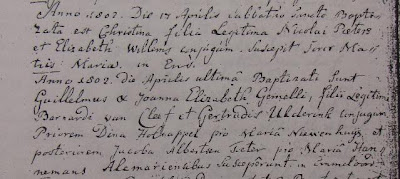 Anno 1802. Die 17 Aprilis Sabbatio Sancto Bapti-
zata est Christina filia Legitima Nicolai Peters
et Elizabeth Willems conjugum. Suscepit Soror Ma-
tris Maria. in End.
Anno 1802. die Aprilis ultimâ Baptizati Sunt
Guillielmus & Joanna Elizabeth Gemelli, filii Legitimi
Bernardi van Cleef et Gertrudis Ulderink conjugum
Priorem Dina Holnappel pro Mariâ Niewenhuys, et
posteriorem Jacoba Albertsen Peter pro Mariâ Han-
nemans Alemarientibus Susceperunt in Emmeloord